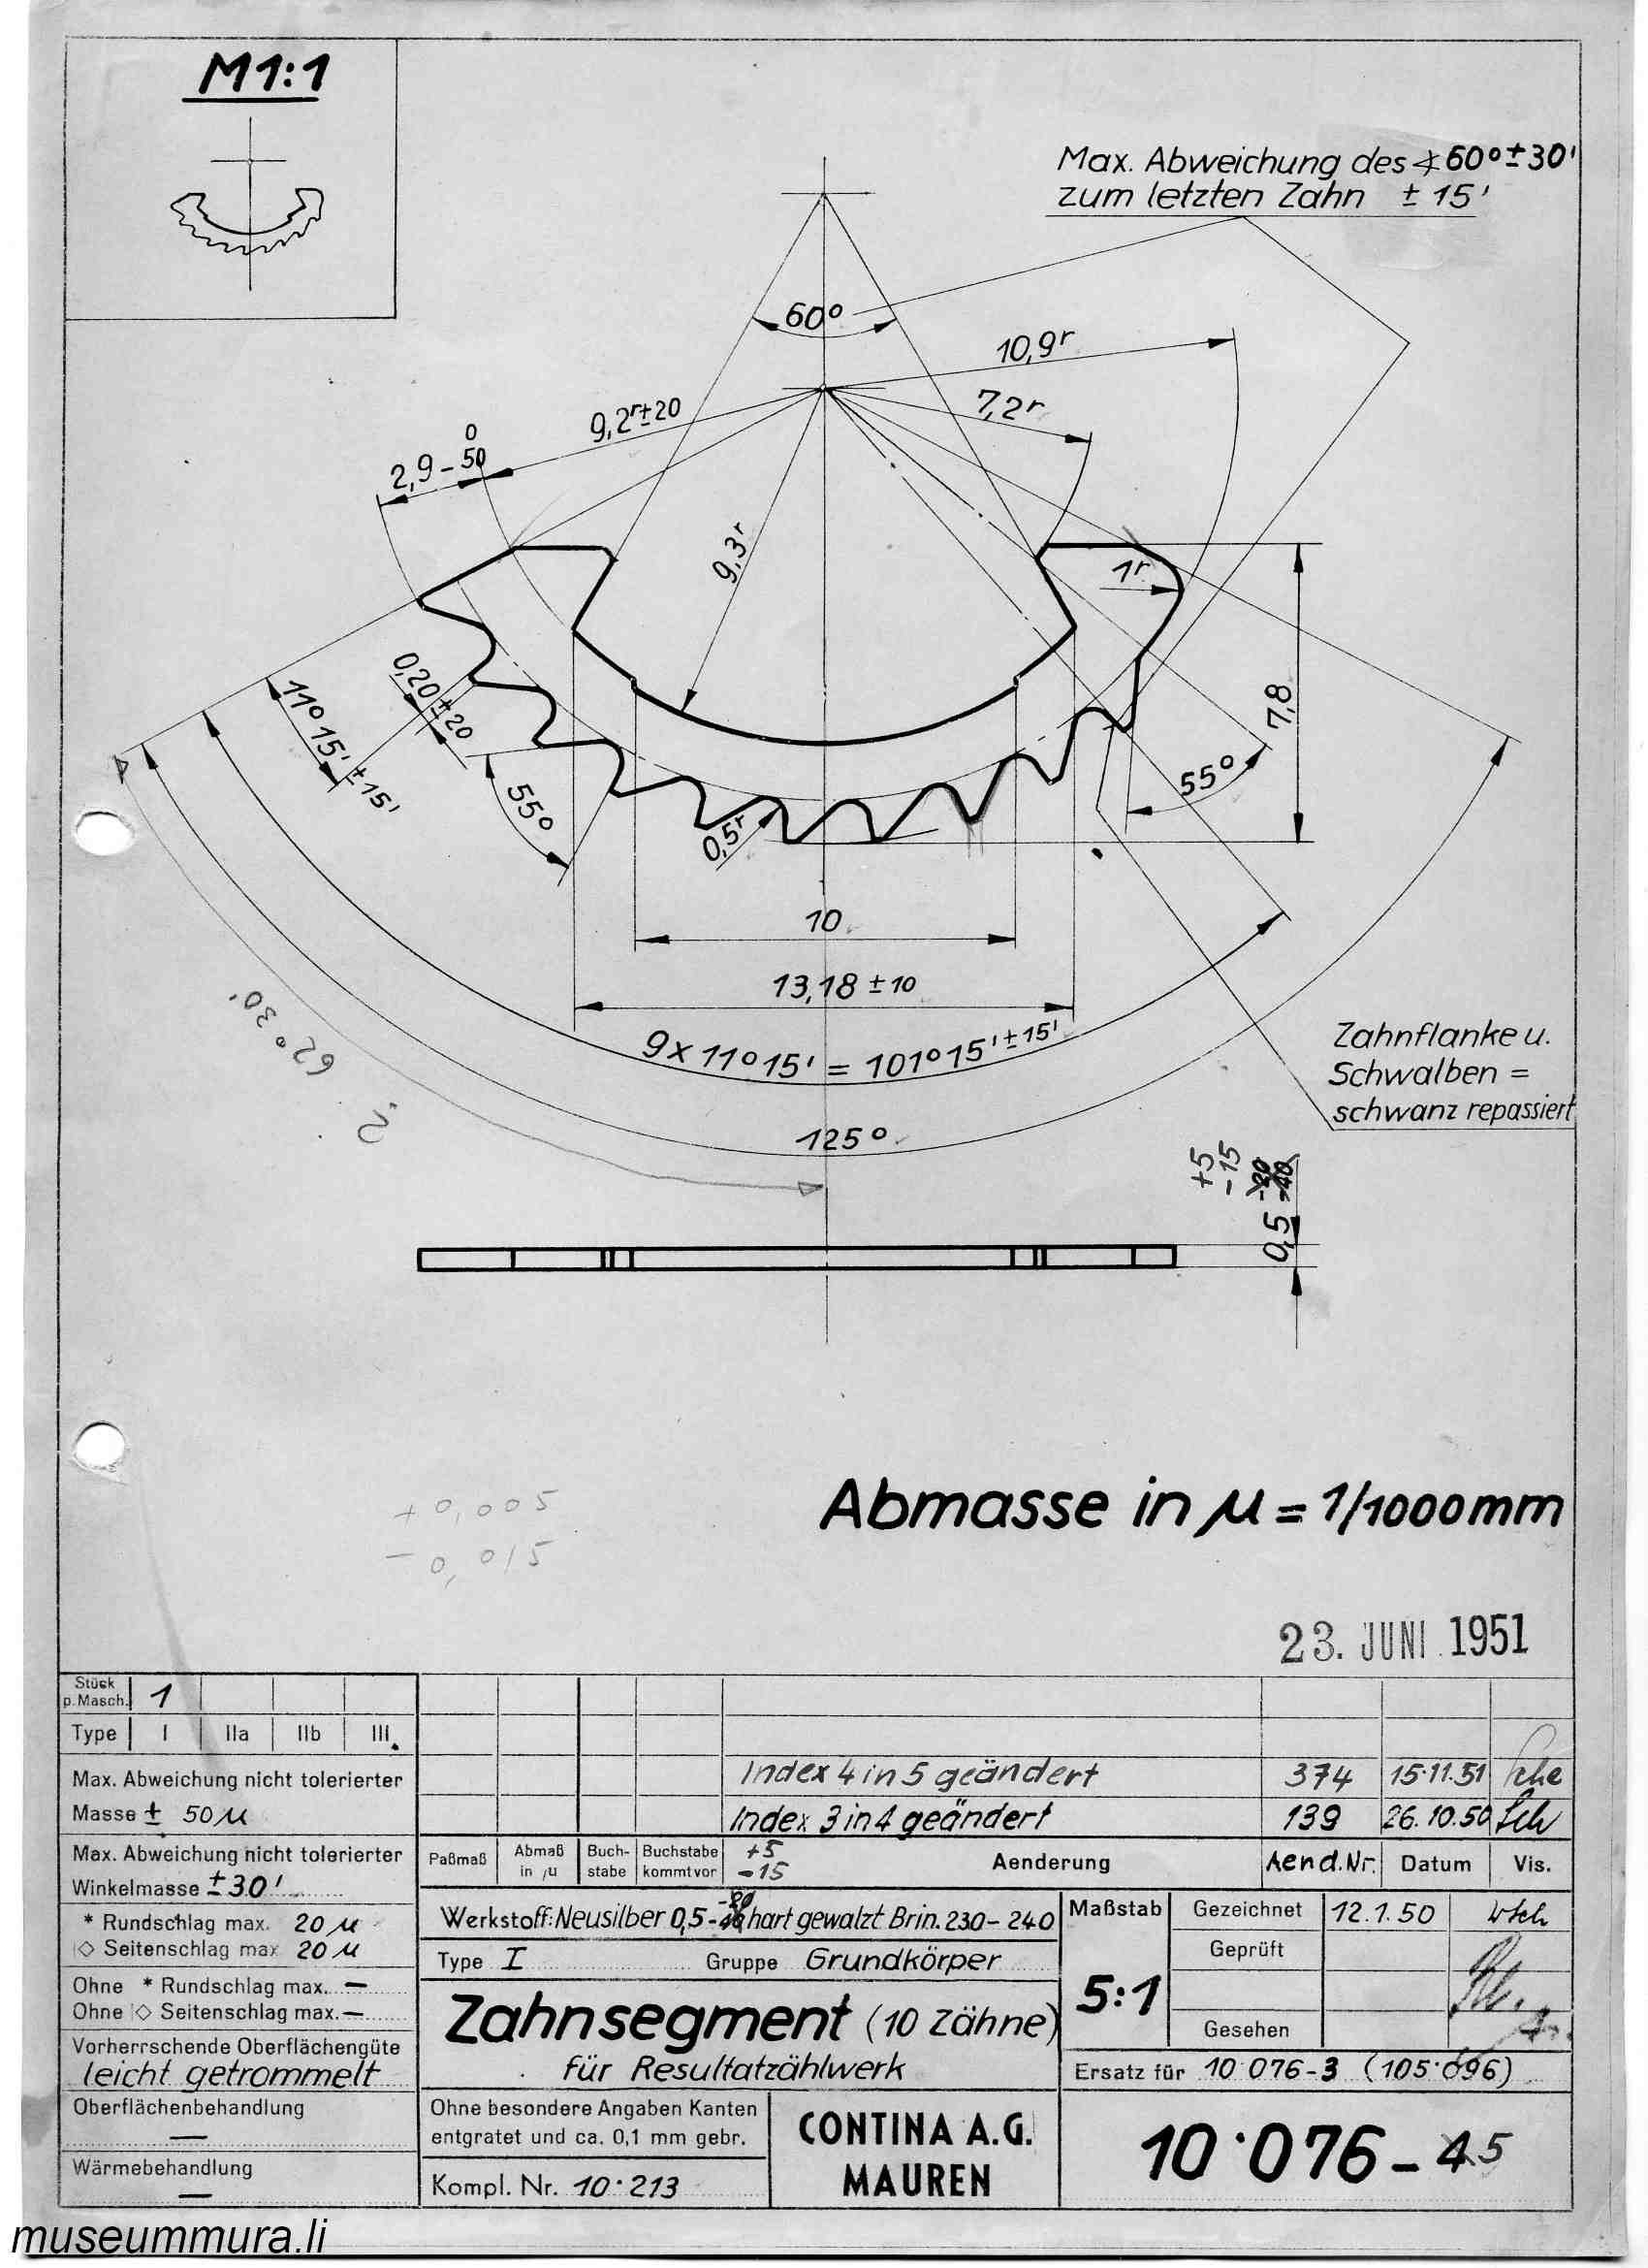 M1:1
Max. Abweichung des ∢60°±30'
zum letzten Zahn ± 15'
60°
10,9r
7,2r
9,2r±20
0
2,9-50
9,3r
1r
7,8
11°15'±15'
0,20±20
55°
55°
0,5r
10
13,18±10
9x11°15' = 101°15'±15'
125°
62°30'
Zahnflanke u.
Schwalben =
schwanz repassiert
+5
-15
-20
-40
0,5
Abmasse in µ = 1/1000mm
+0,005
-0,015
23. JUNI 1951
Stück
p. Masch. 1
Type I IIa IIb III
Max. Abweichung nicht tolerierter
Masse ± 50µ
Max. Abweichung nicht tolerierter
Winkelmasse ±30'
* Rundschlag max. 20µ
◇ Seitenschlag max 20µ
Ohne * Rundschlag max. —
Ohne ◇ Seitenschlag max. —
Vorherrschende Oberflächengüte
leicht getrommelt
Oberflächenbehandlung
—
Wärmebehandlung
—
Index 4 in 5 geändert 374 15.11.51
Index 3 in 4 geändert 139 26.10.50 Sch
Paßmaß Abmaß in µ Buchstabe Buchstabe kommt vor +5 -15 Aenderung Aend.Nr. Datum Vis.
Werkstoff: Neusilber 0,5 hart gewalzt Brin. 230-240
Type I Gruppe Grundkörper
Zahnsegment (10 Zähne)
für Resultatzählwerk
Maßstab
5:1
Gezeichnet 12.1.50
Geprüft
Gesehen
Ersatz für 10·076-3 (105·096)
Ohne besondere Angaben Kanten
entgratet und ca. 0,1 mm gebr.
Kompl. Nr. 10·213
CONTINA A.G.
MAUREN
10·076-4 5
museummura.li